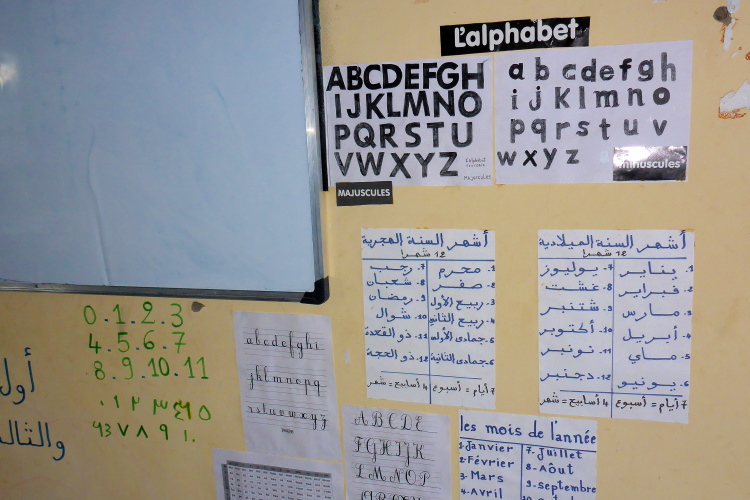 L'alphabet
ABCDEFGH
IJKLMNO
PQRSTU
VWXYZ
L'alphabet
Majuscules
MAJUSCULES
a b c d e f g h
i j k l m n o
p q r s t u v
w x y z
minuscules
أشهر السنة الهجرية
12 شهرا
1. محرم 7. رجب
2. صفر 8. شعبان
3. ربيع الأول 9. رمضان
4. ربيع الثاني 10. شوال
5. جمادى الأولى 11. ذو القعدة
6. جمادى الثانية 12. ذو الحجة
7 أيام = أسبوع 4 أسابيع = شهر
أشهر السنة الميلادية
12 شهرا
1. يناير 7. يوليوز
2. فبراير 8. غشت
3. مارس 9. شتنبر
4. أبريل 10. أكتوبر
5. ماي 11. نونبر
6. يونيو 12. دجنبر
7 أيام = أسبوع 4 أسابيع = شهر
0.1.2.3
4.5.6.7
8.9.10.11
أول
والثال
a b c d e f g h i
j k l m n o p q
r s t u v w x y z
A B C D E
F G H I J K
L M N O P
les mois de l'année
1-Janvier 7-Juillet
2-Février 8-Août
3-Mars 9-Septembre
4-Avril